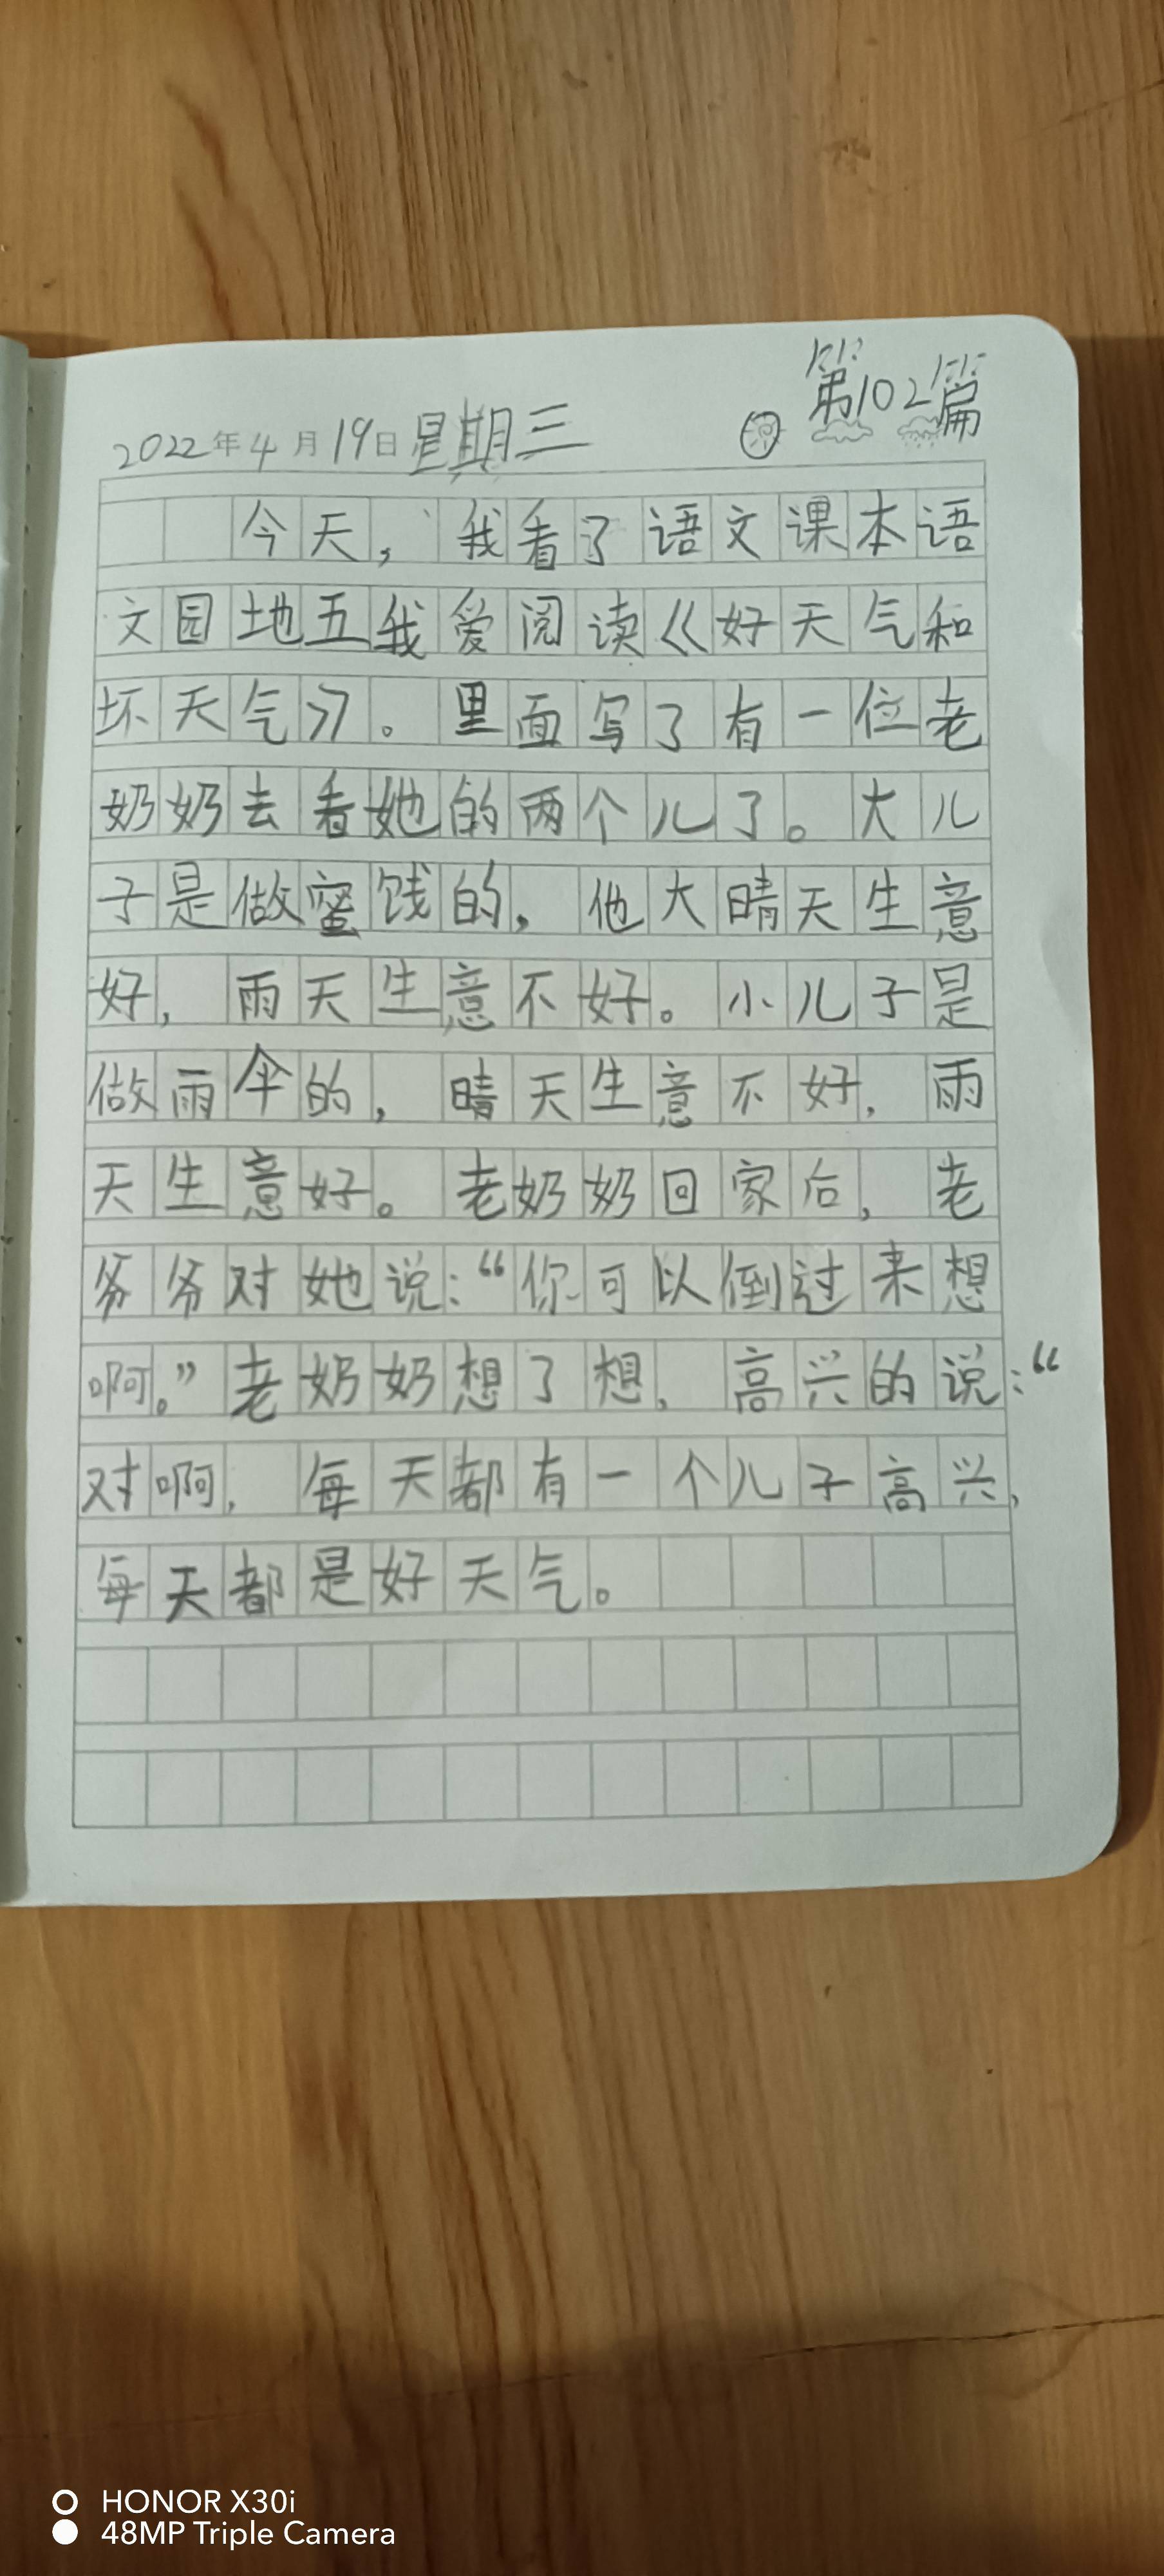 第102篇
2022年4月19日星期三
今天，我看了语文课本语
文园地五我爱阅读《好天气和
坏天气》。里面写了有一位老
奶奶去看她的两个儿了。大儿
子是做蜜饯的，他大晴天生意
好，雨天生意不好。小儿子是
做雨伞的，晴天生意不好，雨
天生意好。老奶奶回家后，老
爷爷对她说：“你可以倒过来想
啊。”老奶奶想了想，高兴的说：“
对啊，每天都有一个儿子高兴，
每天都是好天气。
HONOR X30i
48MP Triple Camera